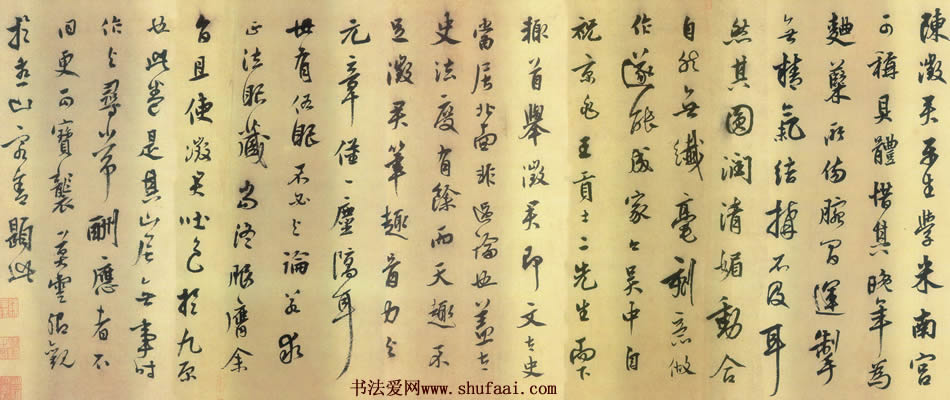 陳澂君平生學米南宮
可稱具體惜其晚年為
麯糵所傷腕間運掣
無精氣結搆不及耳
然其圓潤清媚動合
自然無纖毫刻意做
作遂能成家云吳中自
祝京兆王貢士二先生而下
輒首舉澂君即文太史
當居北面非過論也蓋太
史法度有餘而天趣不
足澂君筆趣骨力與
元章僅一塵隔耳
世有俗眼不必與論若求
正法眼藏當須服膺余
言且使澂君吐色於九原
也此卷是其山居無事時
作與尋常酬應者不
同更可寶襲莫雲卿觀
於 山 書題此
书法爱网www.shufaai.com